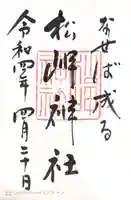 なせば成る
松岬神社
令和四年 四月二十日